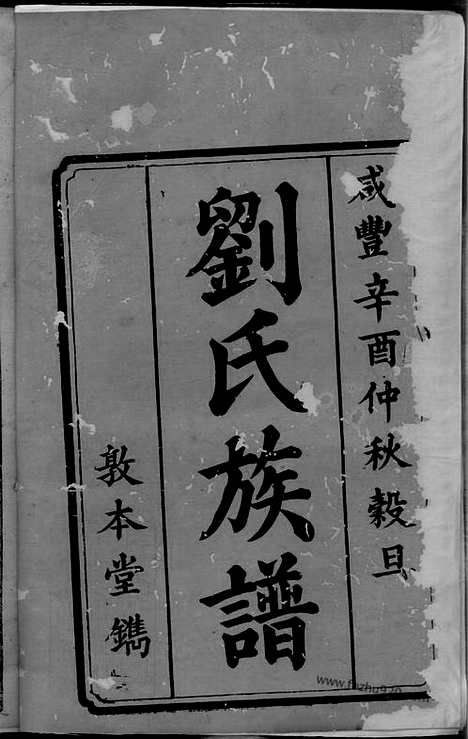 咸豐辛酉仲秋穀旦
劉氏族譜
敦本堂鐫